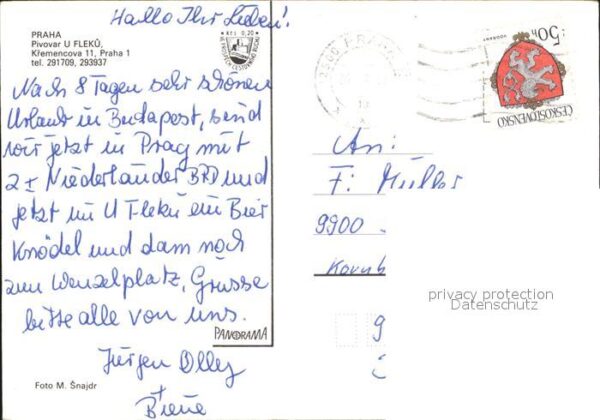 Hallo Ihr Lieben!
PRAHA
Pivovar U FLEKŮ,
Křemencova 11, Praha 1
tel. 291709, 293937
Kčs 0,20
Nach 8 Tagen sehr schönen
Urlaub in Budapest, sind
wir jetzt in Prag mit
2x Niederlander BRD und
jetzt im U Fleku ein Bier
Knödel und dann noch
zum Wenzelplatz, Grüsse
bitte alle von uns.
PANORAMA
Jürgen
+
Biene
Foto M. Šnajdr
50h
ČESKOSLOVENSKO
An:
F: Müller
9900
privacy protection
Datenschutz
9